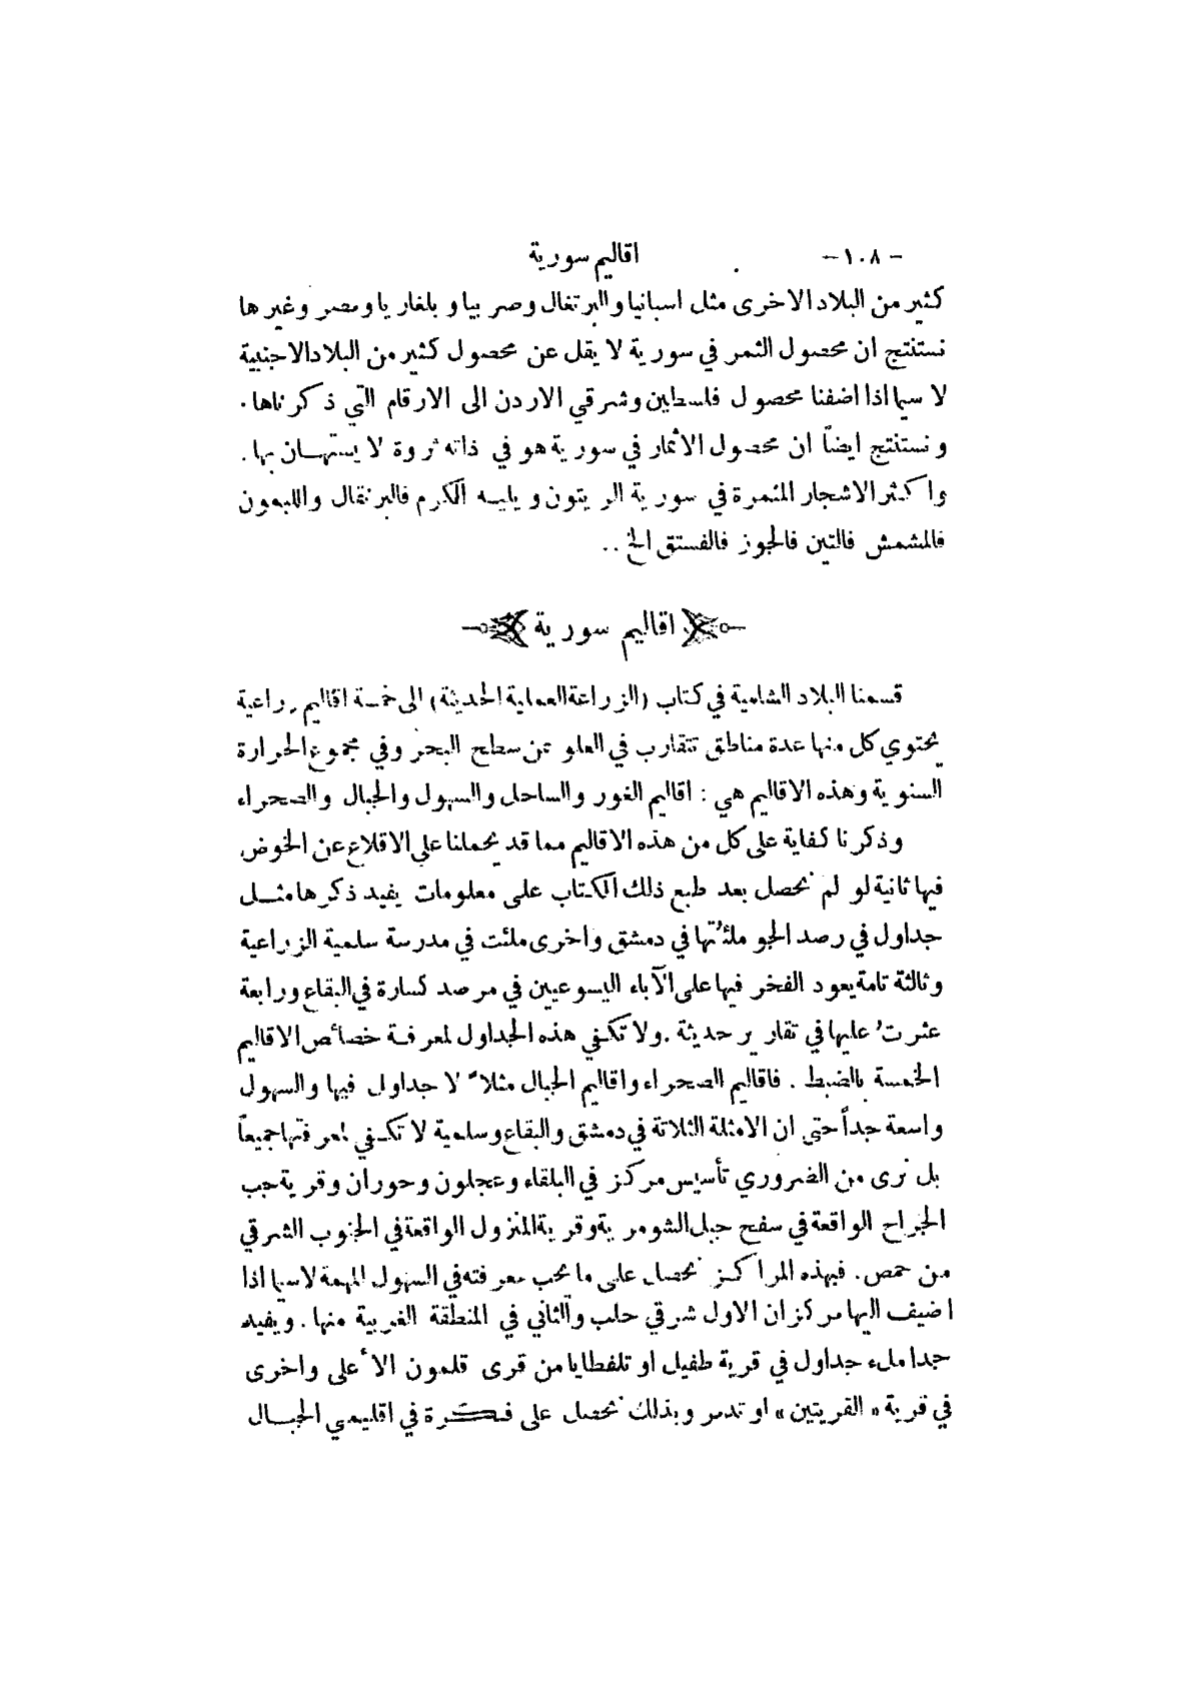 - ١٠٨ - اقاليم سورية
كثير من البلاد الاخرى مثل اسبانيا والبرتغال وصربيا وبلغاريا ومصر وغيرها
نستنتج ان محصول الثمر في سورية لا يقل عن محصول كثير من البلاد الاجنبية
لا سيما اذا اضفنا محصول فلسطين وشرقي الاردن الى الارقام التي ذكرناها.
ونستنتج ايضاً ان محصول الاثمار في سورية هو في ذاته ثروة لا يستهان بها.
واكثر الاشجار المثمرة في سورية الزيتون ويليه الكرم فالبرتقال والليمون
فالمشمش فالتين فالجوز فالفستق الخ ..
اقاليم سورية
قسمنا البلاد الشامية في كتاب (الزراعة العملية الحديثة) الى خمسة اقاليم زراعية
يحتوي كل منها عدة مناطق تتقارب في العلو عن سطح البحر وفي مجموع الحرارة
السنوية وهذه الاقاليم هي : اقاليم الغور والساحل والسهول والجبال والصحراء
وذكرنا كفاية على كل من هذه الاقاليم مما قد يحملنا على الاقلاع عن الخوض
فيها ثانية لو لم نحصل بعد طبع ذلك الكتاب على معلومات يفيد ذكرها مثل
جداول في رصد الجو ملئتُها في دمشق واخرى ملئت في مدرسة سلمية الزراعية
وثالثة تامة يعود الفخر فيها على الآباء اليسوعيين في مرصد كسارة في البقاع ورابعة
عثرتُ عليها في تقارير حديثة . ولا تكفي هذه الجداول لمعرفة خصائص الاقاليم
الخمسة بالضبط . فاقاليم الصحراء واقاليم الجبال مثلاً لا جداول فيها والسهول
واسعة جداً حتى ان الامثلة الثلاثة في دمشق والبقاع وسلمية لا تكفي لمعرفتها جميعاً
بل نرى من الضروري تأسيس مركز في البلقاء وعجلون وحوران وقرية جب
الجراح الواقعة في سفح جبل الشومرية وقرية المنزول الواقعة في الجنوب الشرقي
من حمص . فبهذه المراكز نحصل على ما يجب معرفته في السهول المهمة لاسيما اذا
اضيف اليها مركزان الاول شرقي حلب والثاني في المنطقة الغربية منها . ويفيد
جدا ملء جداول في قرية طفيل او تلفطايا من قرى قلمون الأعلى واخرى
في قرية « القريتين » او تدمر وبذلك نحصل على فكرة في اقليمي الجبال